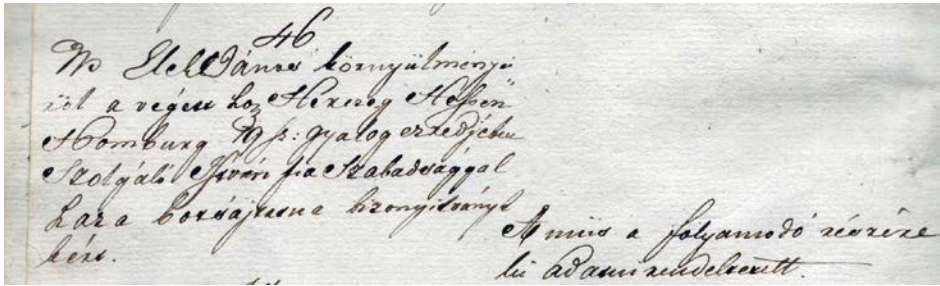 46
Ns Elek János környülményei
ről a végett hogy Herczeg Hessen
Homburg 19 sz: gyalog ezredjében
Szolgáló István fia Szabadsággal
haza bocsájtasson bizonyitványt
kér.
A mint a folyamodó részére
ki adatni rendeltetett.